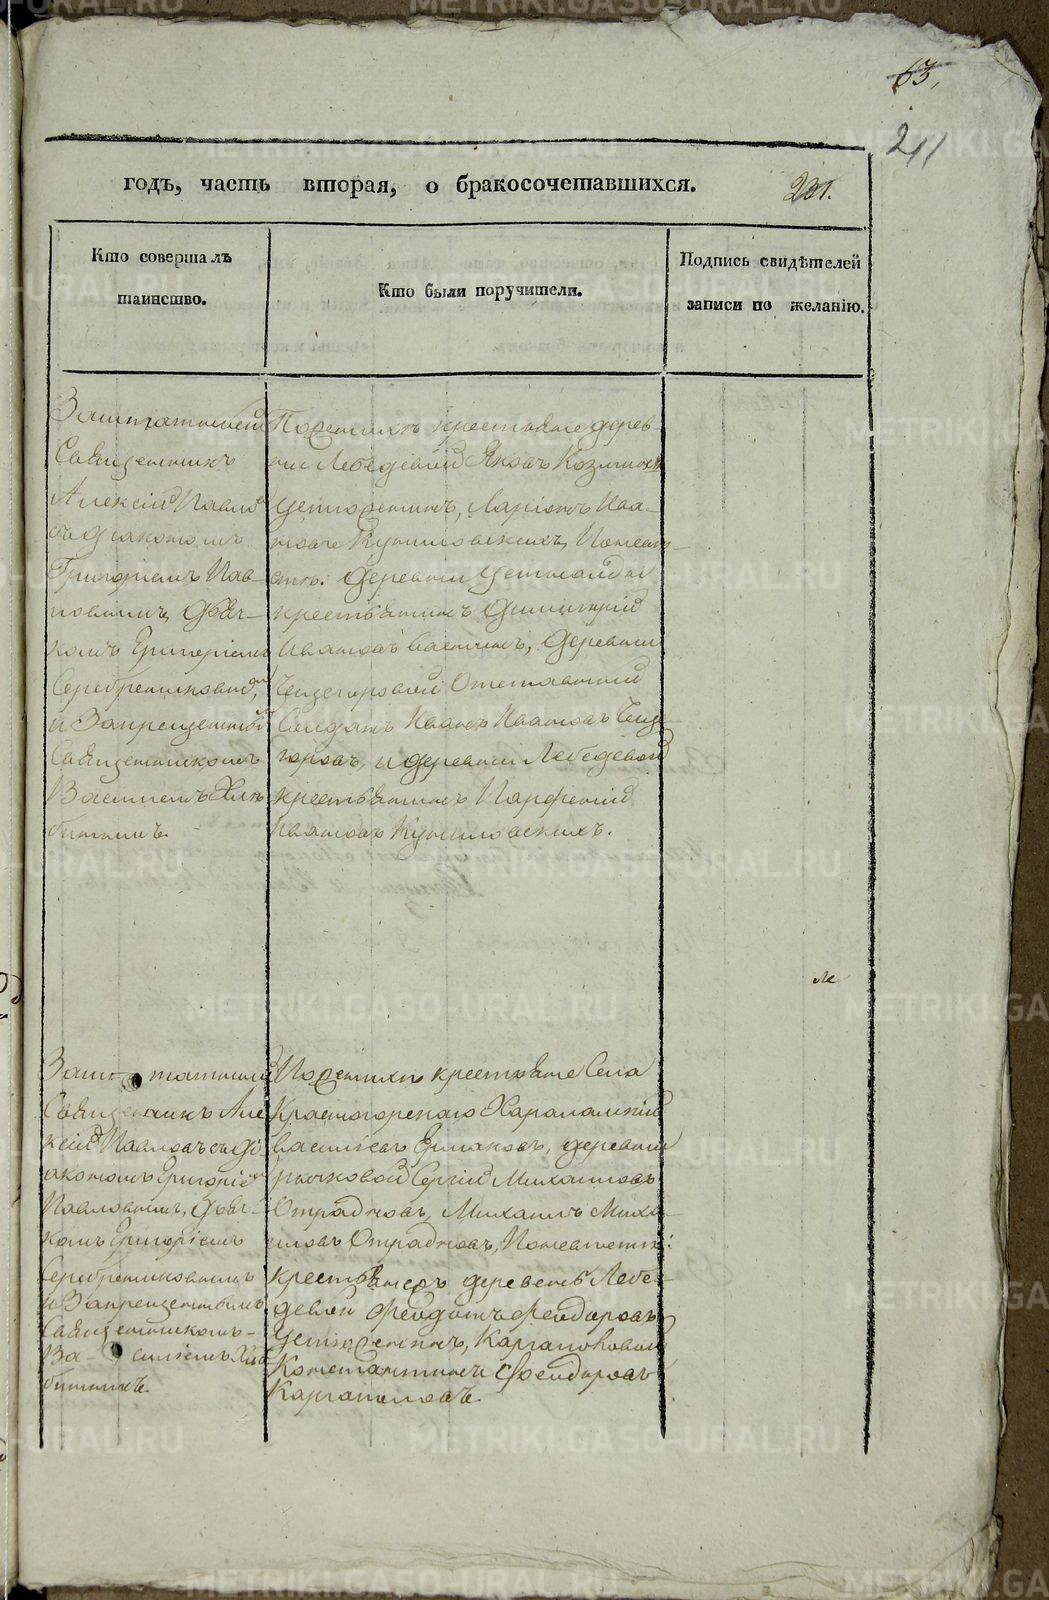 63.
211
годъ, часть вторая, о бракосочетавшихся.
201.
Кто совершалъ
таинство.
Кто были поручители.
Подпись свидѣтелей
записи по желанію.
Заштатный
Священникъ
Алексій Павло
съ діакономъ
Григоріемъ Пав-
ловымъ, дьяч-
комъ Григоріемъ
Серебренниковымъ,
и Запрещеннымъ
Священникомъ
Василіемъ
По женихѣ крестьяне дерев-
ни Лебедевой Яковъ Козминъ
Устюженинъ, Ларіонъ Ива-
новъ Кунгловскихъ, По невѣ-
стѣ: деревни
крестьянинъ Димитрій
Ивановъ деревни
Отставный
Солдатъ Иванъ Ивановъ
и деревни Лебедевой
крестьянинъ Парфеній
Ивановъ
Заштатный
Священникъ Але
ксій Павловъ съ ді
акономъ Григоріем
Павловымъ, дьяч-
комъ Григоріемъ
Серебренниковымъ
и Запрещеннымъ
Священникомъ-
Ва-силіемъ
По женихѣ крестьяне Села
Красногорскаго Харалампій
Васильевъ Ермаковъ, деревни
Рычковой Сергій Михаиловъ
Отрадновъ, Михаилъ Миха-
иловъ Отрадновъ, По невѣстѣ:
крестьянеъ деревень Лебе-
девой Феодотъ Феодоровъ
Устюженинъ, Каргаполовой
Константинъ Феодоровъ
Каргаполовъ.
METRIKI.GASO-URAL.RU